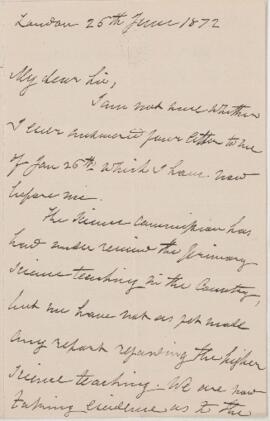 London 25th June 1872
My dear Sir,
I am not sure whether
I ever answered your letter to me
of Jan 26th which I have now
before me.
The Science Commission has
had under review the Primary
Science teaching in the Country,
but we have not as yet made
any report regarding the higher
Science teaching. We are now
taking evidence as to the